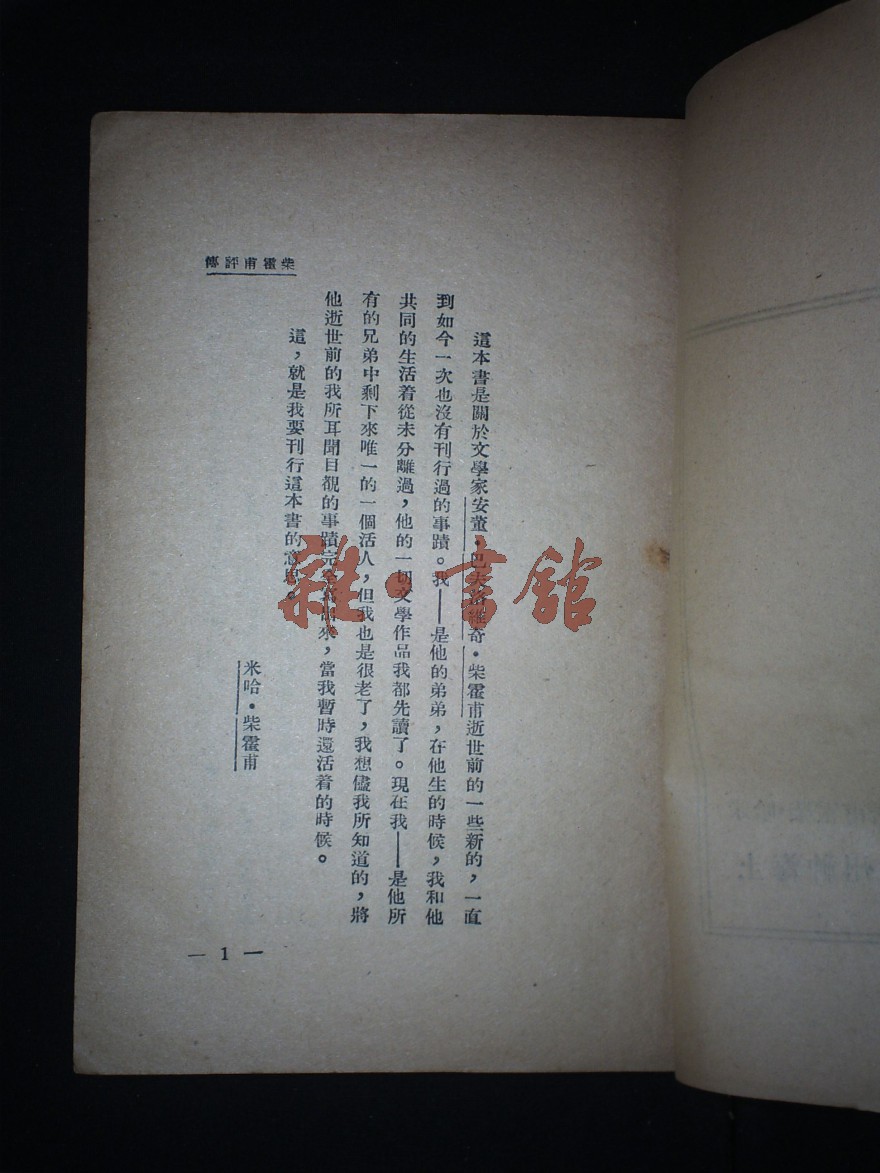 柴霍甫評傳
這本書是關於文學家安董·巴夫維奇·柴霍甫逝世前的一些新的，一直
到如今一次也沒有刊行過的事蹟。我——是他的弟弟，在他生的時候，我和他
共同的生活着從未分離過，他的一切文學作品我都先讀了。現在我——是他所
有的兄弟中剩下來唯一的一個活人，但我也是很老了，我想儘我所知道的，將
他逝世前的我所耳聞目覩的事蹟完來，當我暫時還活着的時候。
這，就是我要刊行這本書的意思。
米哈·柴霍甫
— 1 —
雜·書館